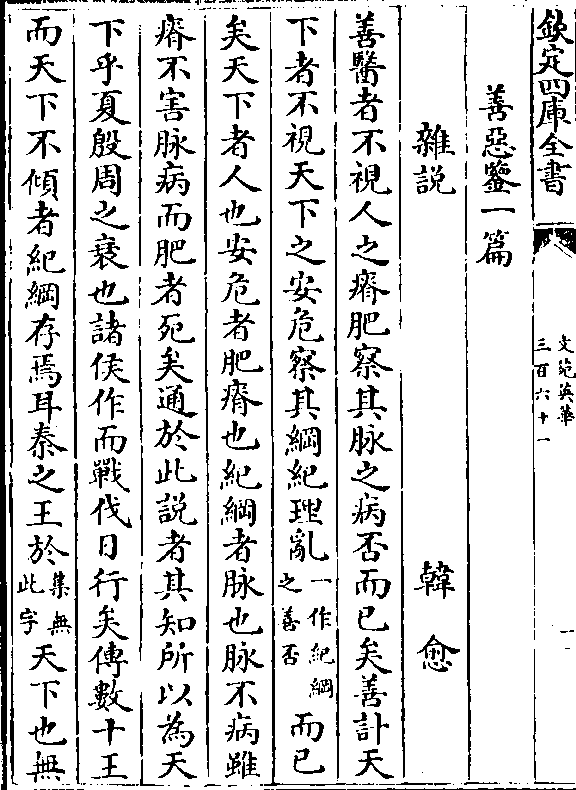 欽定四庫全書
文苑英華
三百六十一
一
善惡鑒一篇
雜說
韓愈
善醫者不視人之瘠肥察其脉之病否而已矣善計天
下者不視天下之安危察其綱紀理亂一作紀綱之善否而已
矣天下者人也安危者肥瘠也紀綱者脉也脉不病雖
瘠不害脉病而肥者死矣通於此説者其知所以為天
下乎夏殷周之衰也諸侯作而戰伐日行矣傳數十王
而天下不傾者紀綱存焉耳秦之王於集無此字天下也無